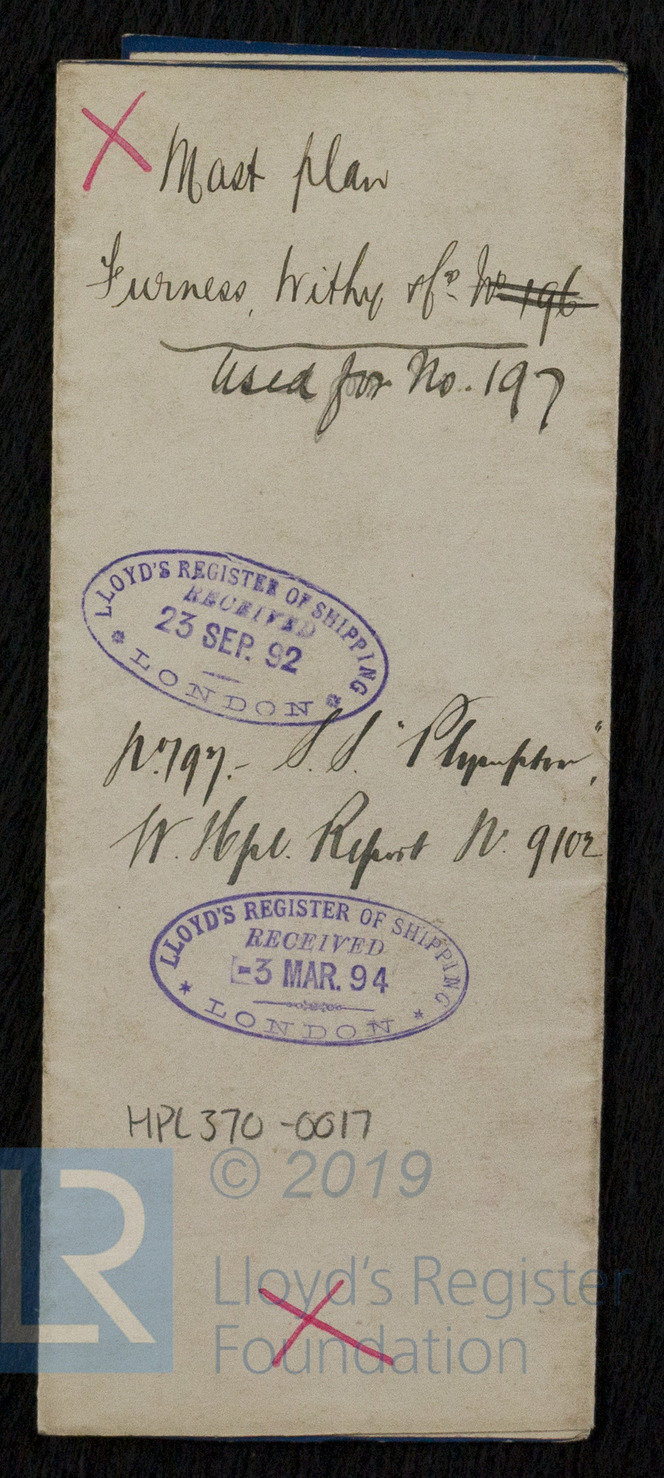 Mast plan
Furness, Withy & Cº. Nº 196
Used for No. 197
LLOYD'S REGISTER OF SHIPPING
RECEIVED
23 SEP. 92
LONDON
Nº 197.- S.S. "Plympton",
W. Hpl. Report Nº 9102
LLOYD'S REGISTER OF SHIPPING
RECEIVED
-3 MAR. 94
LONDON
HPL370-0017
© 2019
LR
Lloyd's Register
Foundation